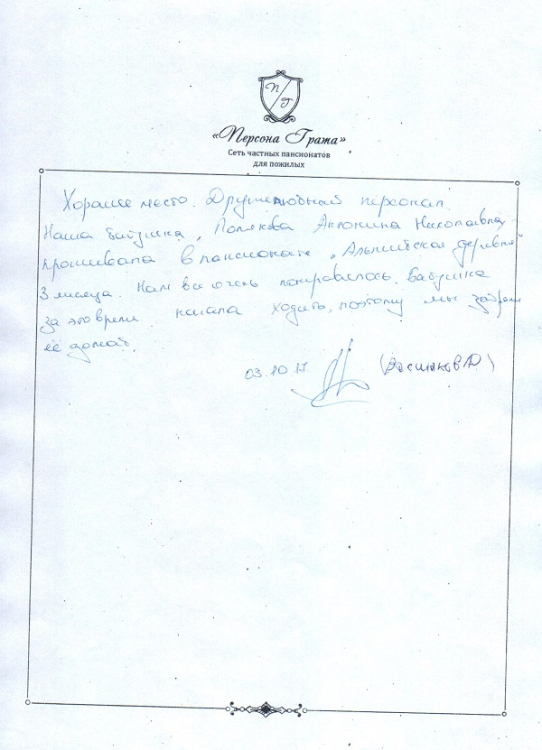 П Г
«Персона Грата»
Сеть частных пансионатов
для пожилых
Хорошее место. Дружелюбный персонал.
Наша бабушка, Полякова Антонина Николаевна
проживала в пансионате „Альпийская деревня"
3 месяца. Нам все очень понравилось. Бабушка
за это время начала ходить, поэтому мы забрали
её домой.
03.10.17